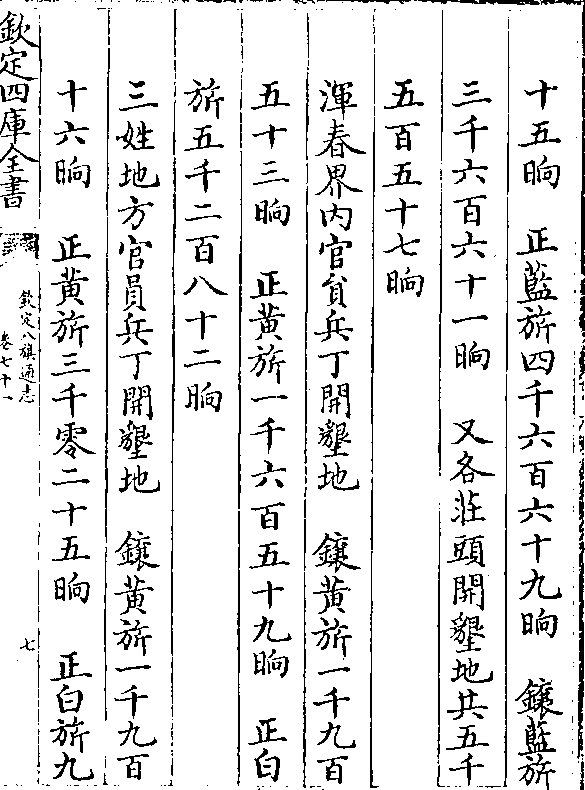 十五晌　正藍旂四千六百六十九晌　鑲藍旂
三千六百六十一晌　又各莊頭開墾地共五千
五百五十七晌
渾春界内官貟兵丁開墾地　鑲黄旂一千九百
五十三晌　正黄旂一千六百五十九晌　正白
旂五千二百八十二晌
三姓地方官員兵丁開墾地　鑲黄旂一千九百
十六晌　正黄旂三千零二十五晌　正白旂九
欽定四庫全書
欽定八旗通志
卷七十一
七